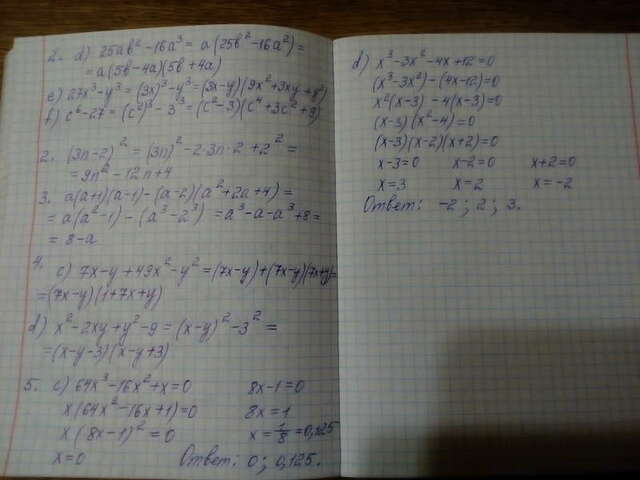 2. d) 25ab² - 16a³ = a(25b² - 16a²) =
= a(5b - 4a)(5b + 4a)
e) 27x³ - y³ = (3x)³ - y³ = (3x - y)(9x² + 3xy + y²)
f) c⁶ - 27 = (c²)³ - 3³ = (c² - 3)(c⁴ + 3c² + 9)
2. (3n - 2)² = (3n)² - 2·3n·2 + 2² =
= 9n² - 12n + 4
3. a(a+1)(a-1) - (a-2)(a² + 2a + 4) =
= a(a² - 1) - (a³ - 2³) = a³ - a - a³ + 8 =
= 8 - a
4.
c) 7x - y + 49x² - y² = (7x - y) + (7x - y)(7x + y) =
= (7x - y)(1 + 7x + y)
d) x² - 2xy + y² - 9 = (x - y)² - 3² =
= (x - y - 3)(x - y + 3)
5. c) 64x³ - 16x² + x = 0
x(64x² - 16x + 1) = 0
x(8x - 1)² = 0
x = 0
8x - 1 = 0
8x = 1
x = 1/8 = 0,125
Ответ: 0; 0,125.
d) x³ - 3x² - 4x + 12 = 0
(x³ - 3x²) - (4x - 12) = 0
x²(x - 3) - 4(x - 3) = 0
(x - 3)(x² - 4) = 0
(x - 3)(x - 2)(x + 2) = 0
x - 3 = 0 x - 2 = 0 x + 2 = 0
x = 3 x = 2 x = -2
Ответ: -2; 2; 3.